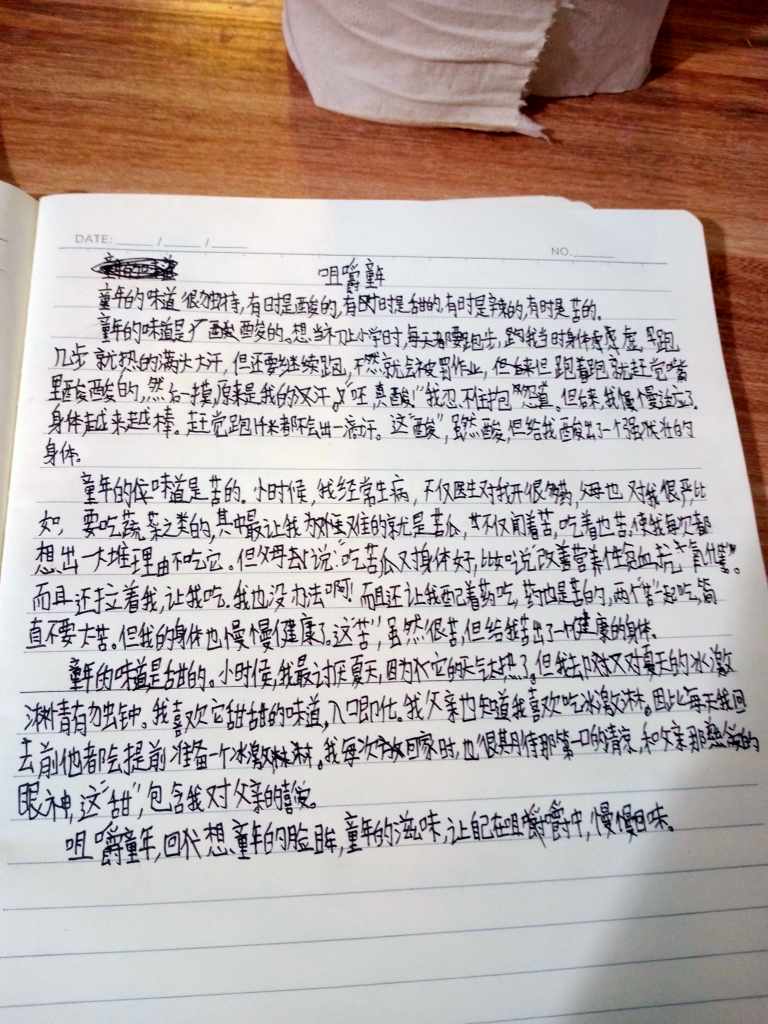 DATE: / /
NO.
咀嚼童年
童年的味道很独特,有时是酸的,有时是甜的,有时是辛辣的,有时是苦的。
童年的味道是酸的。想当初上小学时,每天都要跑步,我当时身体虚,早跑
几步就热的满头大汗,但还要继续跑,不然就会被罚作业,但跑着跑就赶觉嘴
里酸酸的,然后一摸,原来是我的汉汗。"呸,真酸!"我忍不住抱怨道。但后来,我慢慢适应了,
身体越来越棒。赶觉跑什米都不会出一滴汗。这"酸",虽然酸,但给我酸出了一个强壮的
身体。
童年的味道是苦的。小时候,我经常生病,不仅医生对我开很多药,父母也对我很严,比
如,要吃蔬菜之类的,其中最让我为难的就是苦瓜,不仅闻着苦,吃着也苦,使我每次都
想出一大堆理由不吃它。但父母去说:"吃苦瓜又对身体好,比如说改善营养性贫血,抗氧化等"。
而且还拉着我,让我吃。我也没办法啊!而且还让我配着药吃,药也是苦的,两个"苦"一起吃,简
直不要太苦。但我的身体也慢慢健康了。这"苦",虽然很苦,但给我苦出了一个健康的身体。
童年的味道是甜的。小时候,我最讨厌夏天,因为它的天气太热了。但我去又对夏天的冰激
淋情有独钟。我喜欢它甜甜的味道,入口即化。我父亲也知道我喜欢吃冰激淋。因此每天我回
去前他都会提前准备一个冰激淋。我每次回家时,也很期待那第一口的清凉,和父亲那慈爱的
眼神,这"甜",包含我对父亲的喜爱。
咀嚼童年,回想童年的脸,童年的滋味,让自己在咀嚼中,慢慢回味。